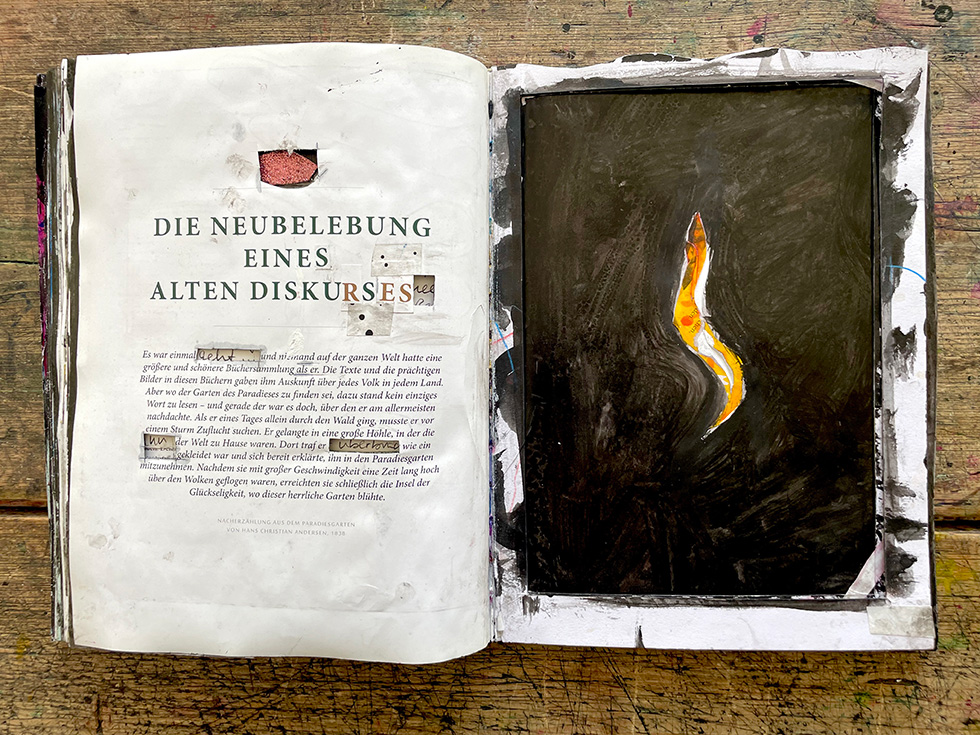 DIE NEUBELEBUNG
EINES
ALTEN DISKURSES
Es war einmal und niemand auf der ganzen Welt hatte eine
größere und schönere Büchersammlung als er. Die Texte und die prächtigen
Bilder in diesen Büchern gaben ihm Auskunft über jedes Volk in jedem Land.
Aber wo der Garten des Paradieses zu finden sei, dazu stand kein einziges
Wort zu lesen – und gerade der war es doch, über den er am allermeisten
nachdachte. Als er eines Tages allein durch den Wald ging, musste er vor
einem Sturm Zuflucht suchen. Er gelangte in eine große Höhle, in der die
der Welt zu Hause waren. Dort traf er wie ein
gekleidet war und sich bereit erklärte, ihn in den Paradiesgarten
mitzunehmen. Nachdem sie mit großer Geschwindigkeit eine Zeit lang hoch
über den Wolken geflogen waren, erreichten sie schließlich die Insel der
Glückseligkeit, wo dieser herrliche Garten blühte.
NACHERZÄHLUNG AUS DEM PARADIESGARTEN
VON HANS CHRISTIAN ANDERSEN, 1838